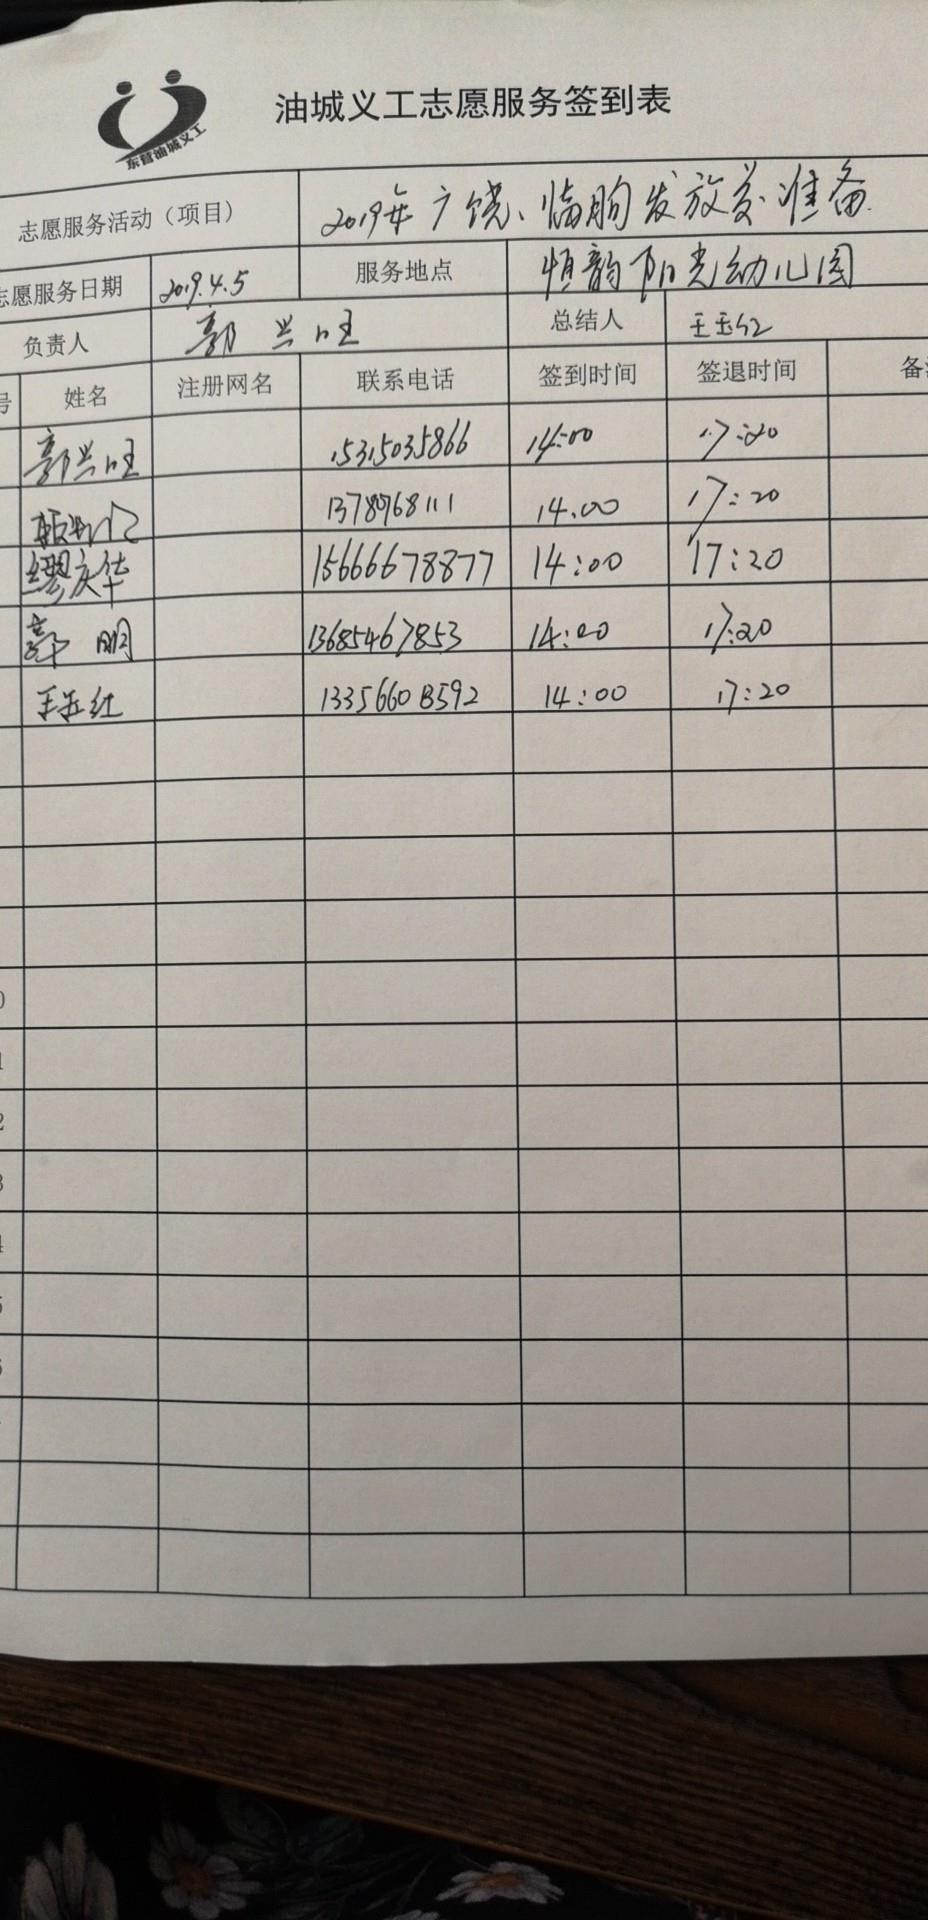 东营油城义工
油城义工志愿服务签到表
志愿服务活动（项目） 2019年广饶、临朐发放前准备
志愿服务日期 2019.4.5 服务地点 恒韵阳光幼儿园
负责人 郭兴旺 总结人 王玉红
号 姓名 注册网名 联系电话 签到时间 签退时间 备
郭兴旺 15315035866 14:00 17:20
1378968111 14:00 17:20
缪庆华 15666678877 14:00 17:20
郭明 13685467853 14:00 17:20
王玉红 14:00 17:20